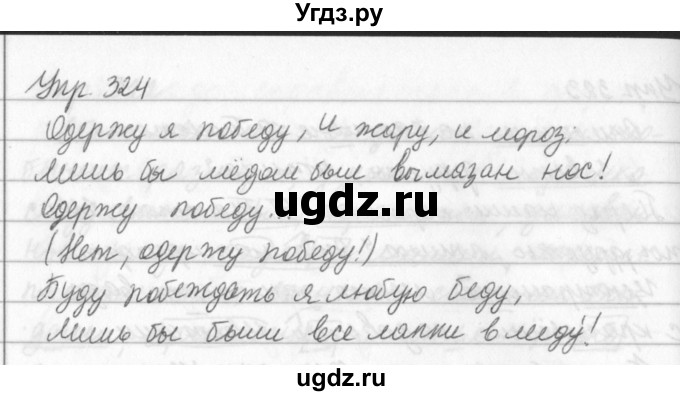 Угдз.ру
Упр 324
Одержу я победу, и жару, и мороз.
Лишь бы мёдом был вымазан нос!
Одержу победу...
ugdz.ru
(Нет, одержу победу!)
Буду побеждать я любую беду,
Лишь бы были все лапки в меду!
ugdz.ru